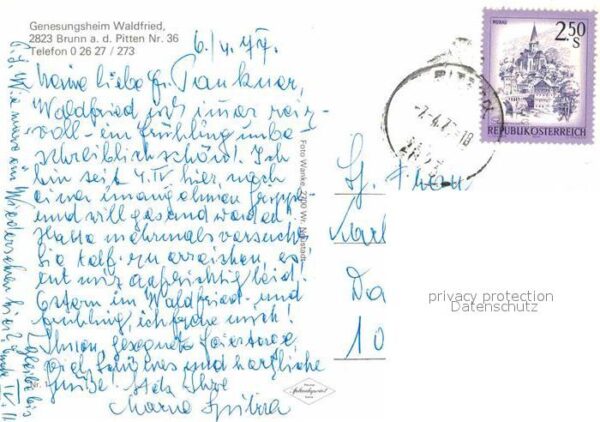 Genesungsheim Waldfried,
2823 Brunn a. d. Pitten Nr. 36
Telefon 0 26 27 / 273
6./4. 77.
Meine liebe Fr. Tankner,
Waldfried ist immer reiz-
voll - im Frühling unbe
schreiblich schön! Ich
bin seit 4. IV hier, nach
einer unangenehmen Grippe
und will gesund werden!
Hatte mehrmals versucht
Sie telf. zu erreichen, es
tut mir aufrichtig leid!
Ostern im Waldfried und
Frühling, ich freue mich!
Ihnen gesegnete Feiertage,
viel Schönes und herzliche
Grüße! Stets Ihre
bis
Ende IV.
Foto Wanke, 2700 Wr. Neustadt
MURAU
2.50
S
REPUBLIK ÖSTERREICH
PITTEN
-7.-4.7 -18
Karl
Da
10
privacy protection
Datenschutz